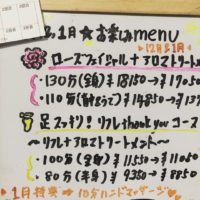 1月★お楽しみmenu
12月&1月
ローズフェイシャル+アロマトリートメント
・130分(全身)¥18150→¥170
・110分(¥14850→¥13
足スッキリ!リフレthank youコース
〜リフレ+アロマトリートメント〜
・100分(全身)¥11550→¥11050
・80分(半身)¥9350→¥8850
1月特典→10分ハンドマッサージ